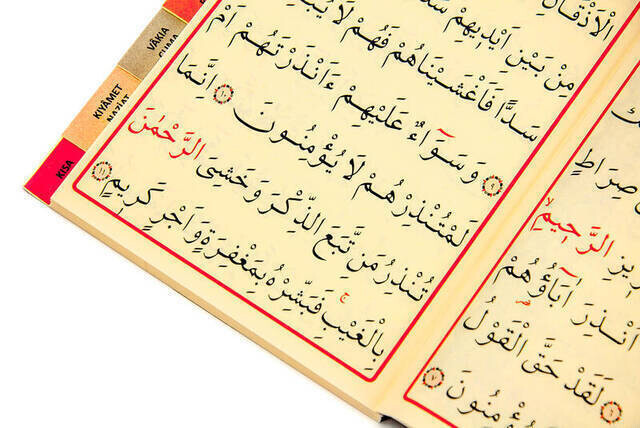 VÂKIA
CUMA
KIYÂMET
NAZİAT
KISA
الْاَذْقَانِ
مِنْ بَيْنِ اَيْدِيهِمْ
سَدًّا فَاَغْشَيْنَاهُمْ فَهُمْ لَا
٩ وَسَوَٓاءٌ عَلَيْهِمْ ءَاَنْذَرْتَهُمْ اَمْ
لَمْ تُنْذِرْهُمْ لَا يُؤْمِنُونَ ١٠ اِنَّمَا
تُنْذِرُ مَنِ اتَّبَعَ الذِّكْرَ وَخَشِيَ الرَّحْمٰنَ
بِالْغَيْبِۚ فَبَشِّرْهُ بِمَغْفِرَةٍ وَاَجْرٍ كَرِيمٍ ١١
صِرَاطٍ
الرَّحِيمِ
اُنْذِرَ اٰبَٓاؤُهُمْ
٦ لَقَدْ حَقَّ الْقَوْلُ
ؤْمِنُونَ ٧